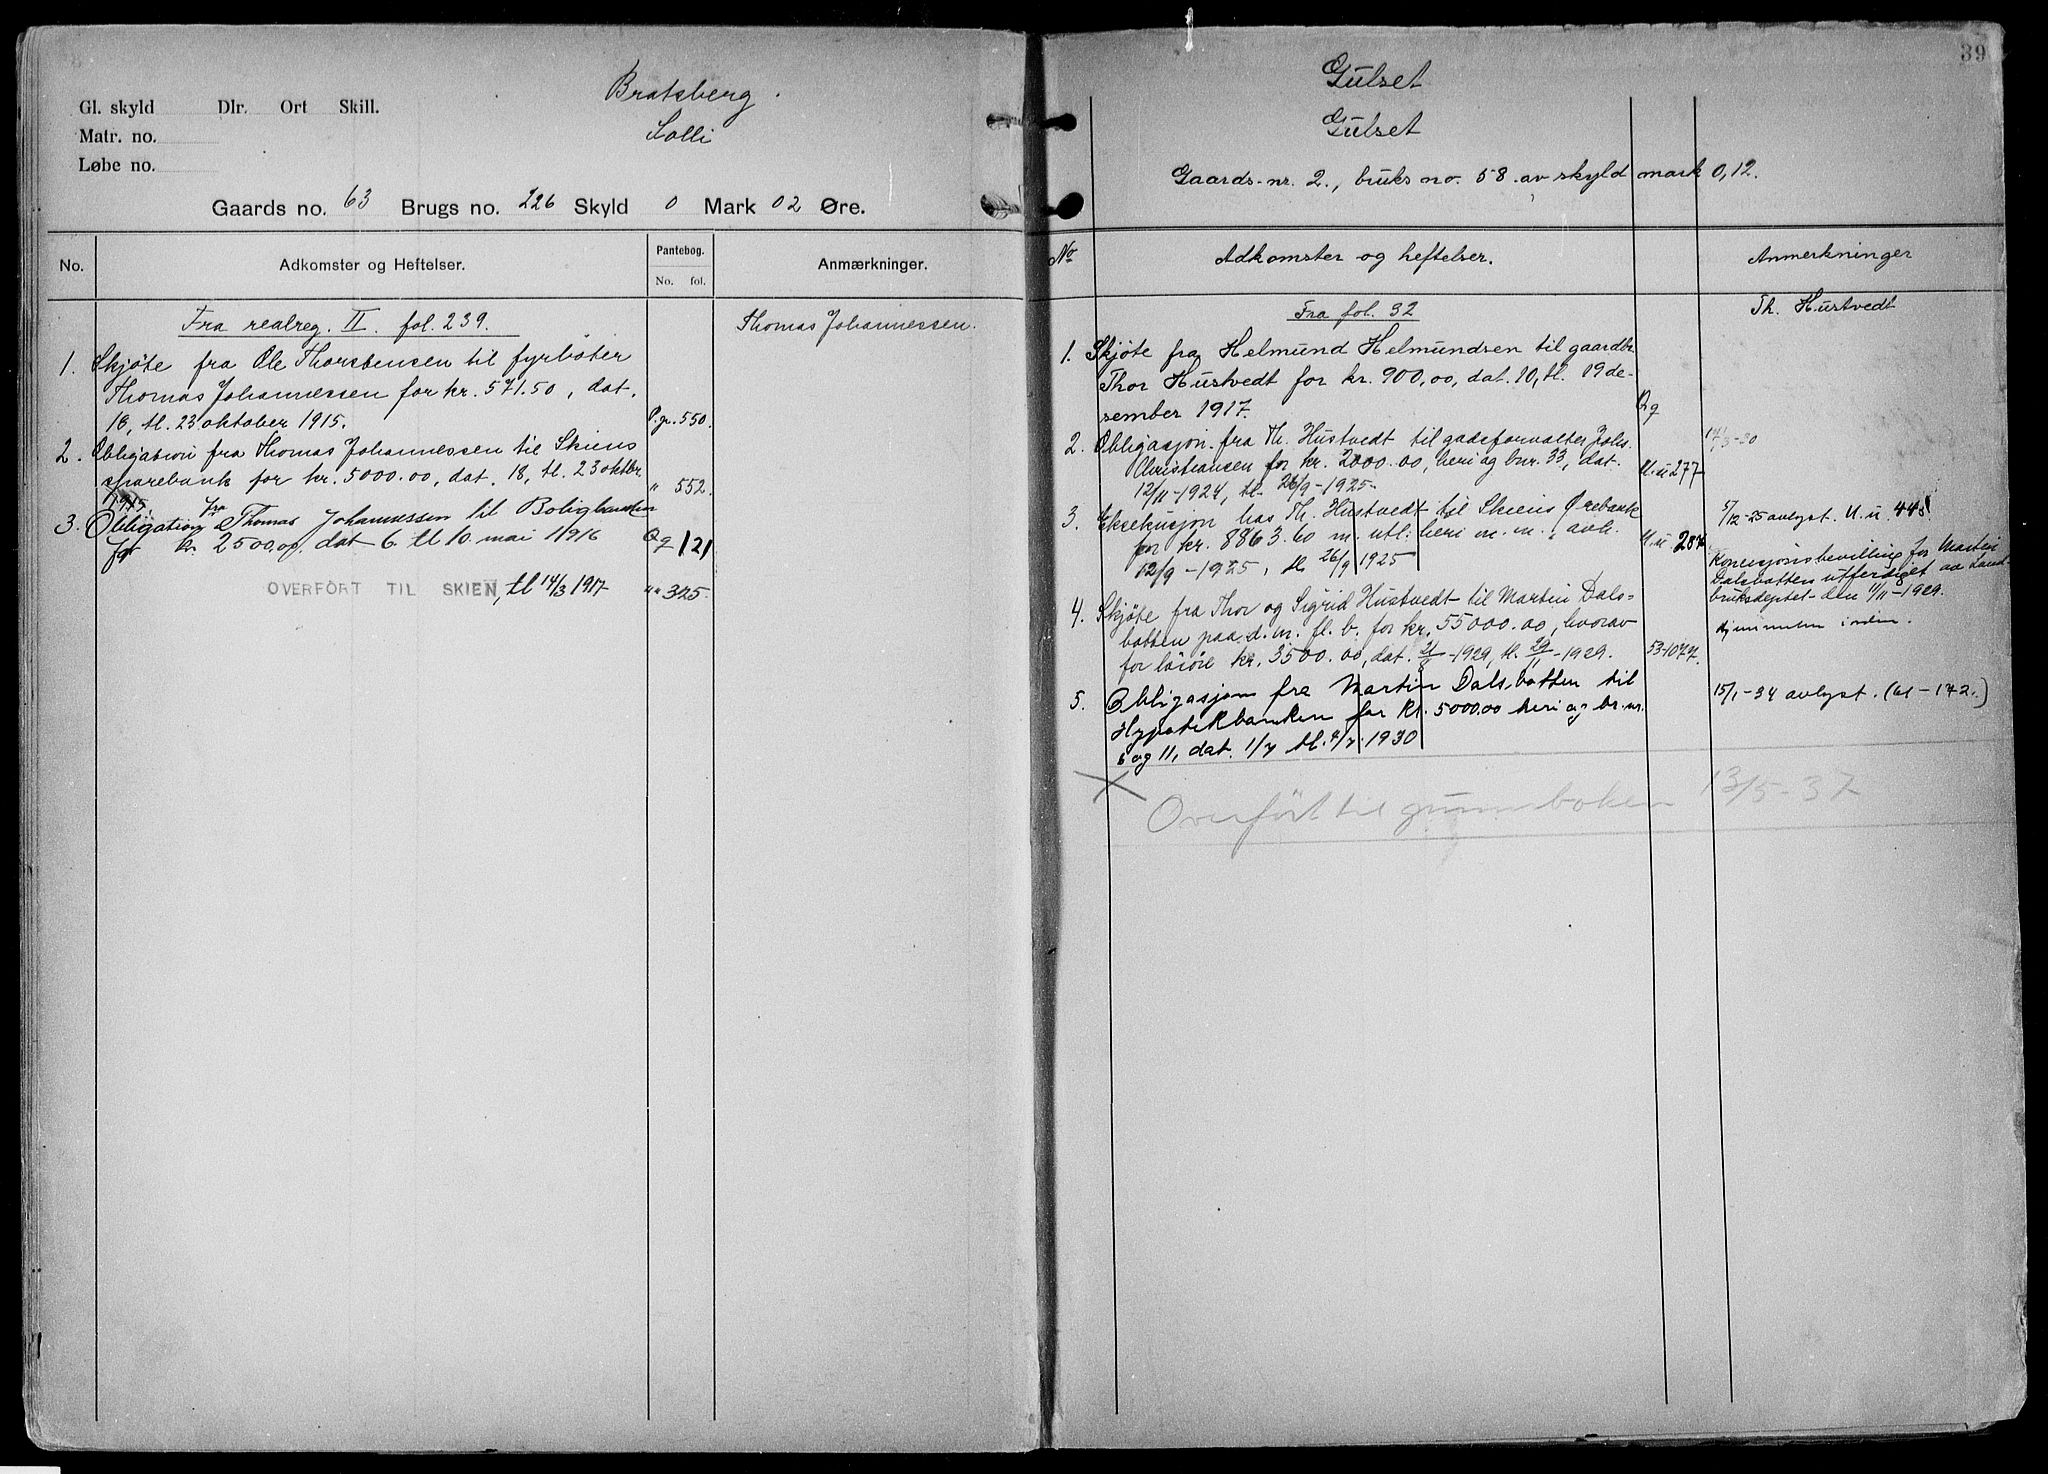 Bratsberg.
Solli
Gl. skyld Dlr. Ort Skill.
Matr. no.
Løbe no.
Gaards no. 63 Brugs no. 226 Skyld 0 Mark 02 Øre.
No. Adkomster og Heftelser. Pantebog. No. fol. Anmærkninger.
Fra realreg. II. fol. 239. Thomas Johannessen.
1. Skjøte fra Ole Thorstensen til fyrbøter
Thomas Johannessen for kr. 571.50, dat.
18, tl. 23 oktober 1915. P. gr. 550.
2. Obligation fra Thomas Johannessen til Skiens
sparebank for kr. 5000.00, dat. 18, tl. 23 oktbr. " 552.
1915.
3. Obligation fra Thomas Johannessen til Boligbanken
for kr. 2500.00, dat 6. tl 10. mai 1916 Qg 121
OVERFÖRT TIL SKIEN, tl 14/3 1917 " " 325.
39
Gulset
Gulset
Gaards-nr. 2., bruks no. 58. av skyld mark 0,12.
No Adkomster og heftelser. Anmerkninger
Fra fol. 32 Th. Hustvedt
1. Skjøte fra Helmund Helmundsen til gaardbr.
Thor Hustvedt for kr. 900,00, dat. 10, tl. 19 de-
sember 1917. Qg
2. Obligasjon fra Th. Hustvedt til godsforvalter Johs. 17/3-30
Christiansen for kr. 2000.00, heri og bnr. 33, dat.
12/11-1924, tl. 26/9-1925. U.u 277
3. Eksekusjon hos Th. Hustvedt til Skiens Ørebank 5/12-25 avlyst. U.u. 445
for kr. 8863.60 m. utl. heri m. m., avh. U.u. 287
12/9-1925, tl 26/9 1925
Konsesjonsbevilling for Martin
Dalsbotten utferdiget av Land-
bruksdeptet den 11/11-1929.
4. Skjøte fra Thor og Sigrid Hustvedt til Martin Dals-
botten paa d. m. fl. b. for kr. 55000.00, hvorav Hjemmelen i orden.
for løsöre kr. 3500.00, dat. 21/8-1929, tl. 29/11-1929. 53-1077.
5. Obligasjon fra Martin Dalsbotten til 15/1-34 avlyst. (61-142.)
Hypotekbanken for kr. 5000.00 heri og br. nr.
6 og 11, dat. 1/7 tl. 4/7. 1930
Overfört til grunnboken 13/5-37